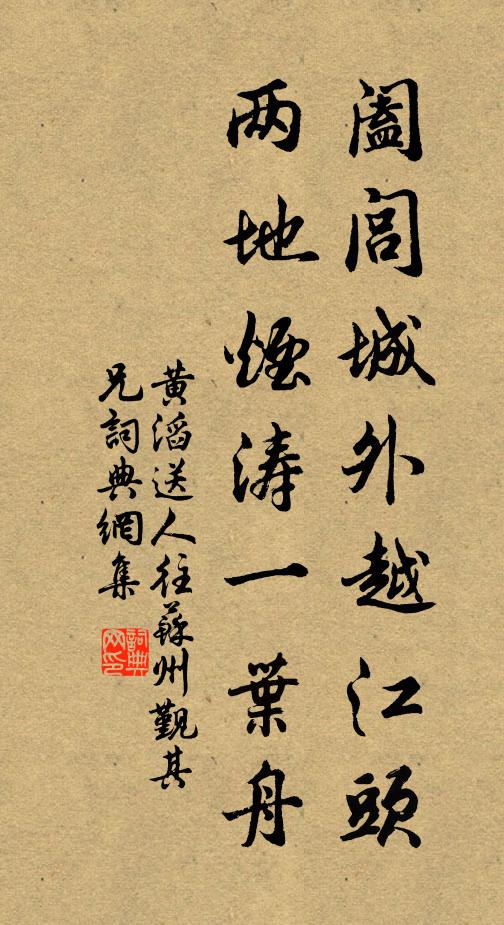 闔閭城外越江頭
两地煙濤一葉舟
黃滔送人往蘇州覲其
兄詞典網集
詞典网印